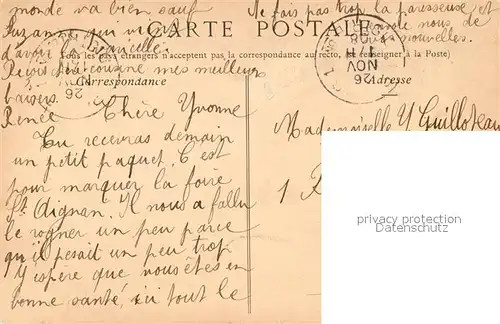 monde va bien sauf
Suzanne qui vient
d'avoir la
Reçois chère cousine mes meilleurs
baisers
Renée
Ne fais pas trop la paresseuse et
nous de
nouvelles.
CARTE POSTALE
Tous les pays étrangers n'acceptent pas la correspondance au recto, se renseigner à la Poste)
Correspondance
Adresse
NOV
26
26
Chère Yvonne
Tu recevras demain
un petit paquet. C'est
pour marquer la foire
St. Aignan. Il nous a fallu
le rogner un peu parce
qu'il pesait un peu trop
J'espère que vous êtes en
bonne santé, ici tout le
Mademoiselle Y Guilloteau
1
privacy protection
Datenschutz